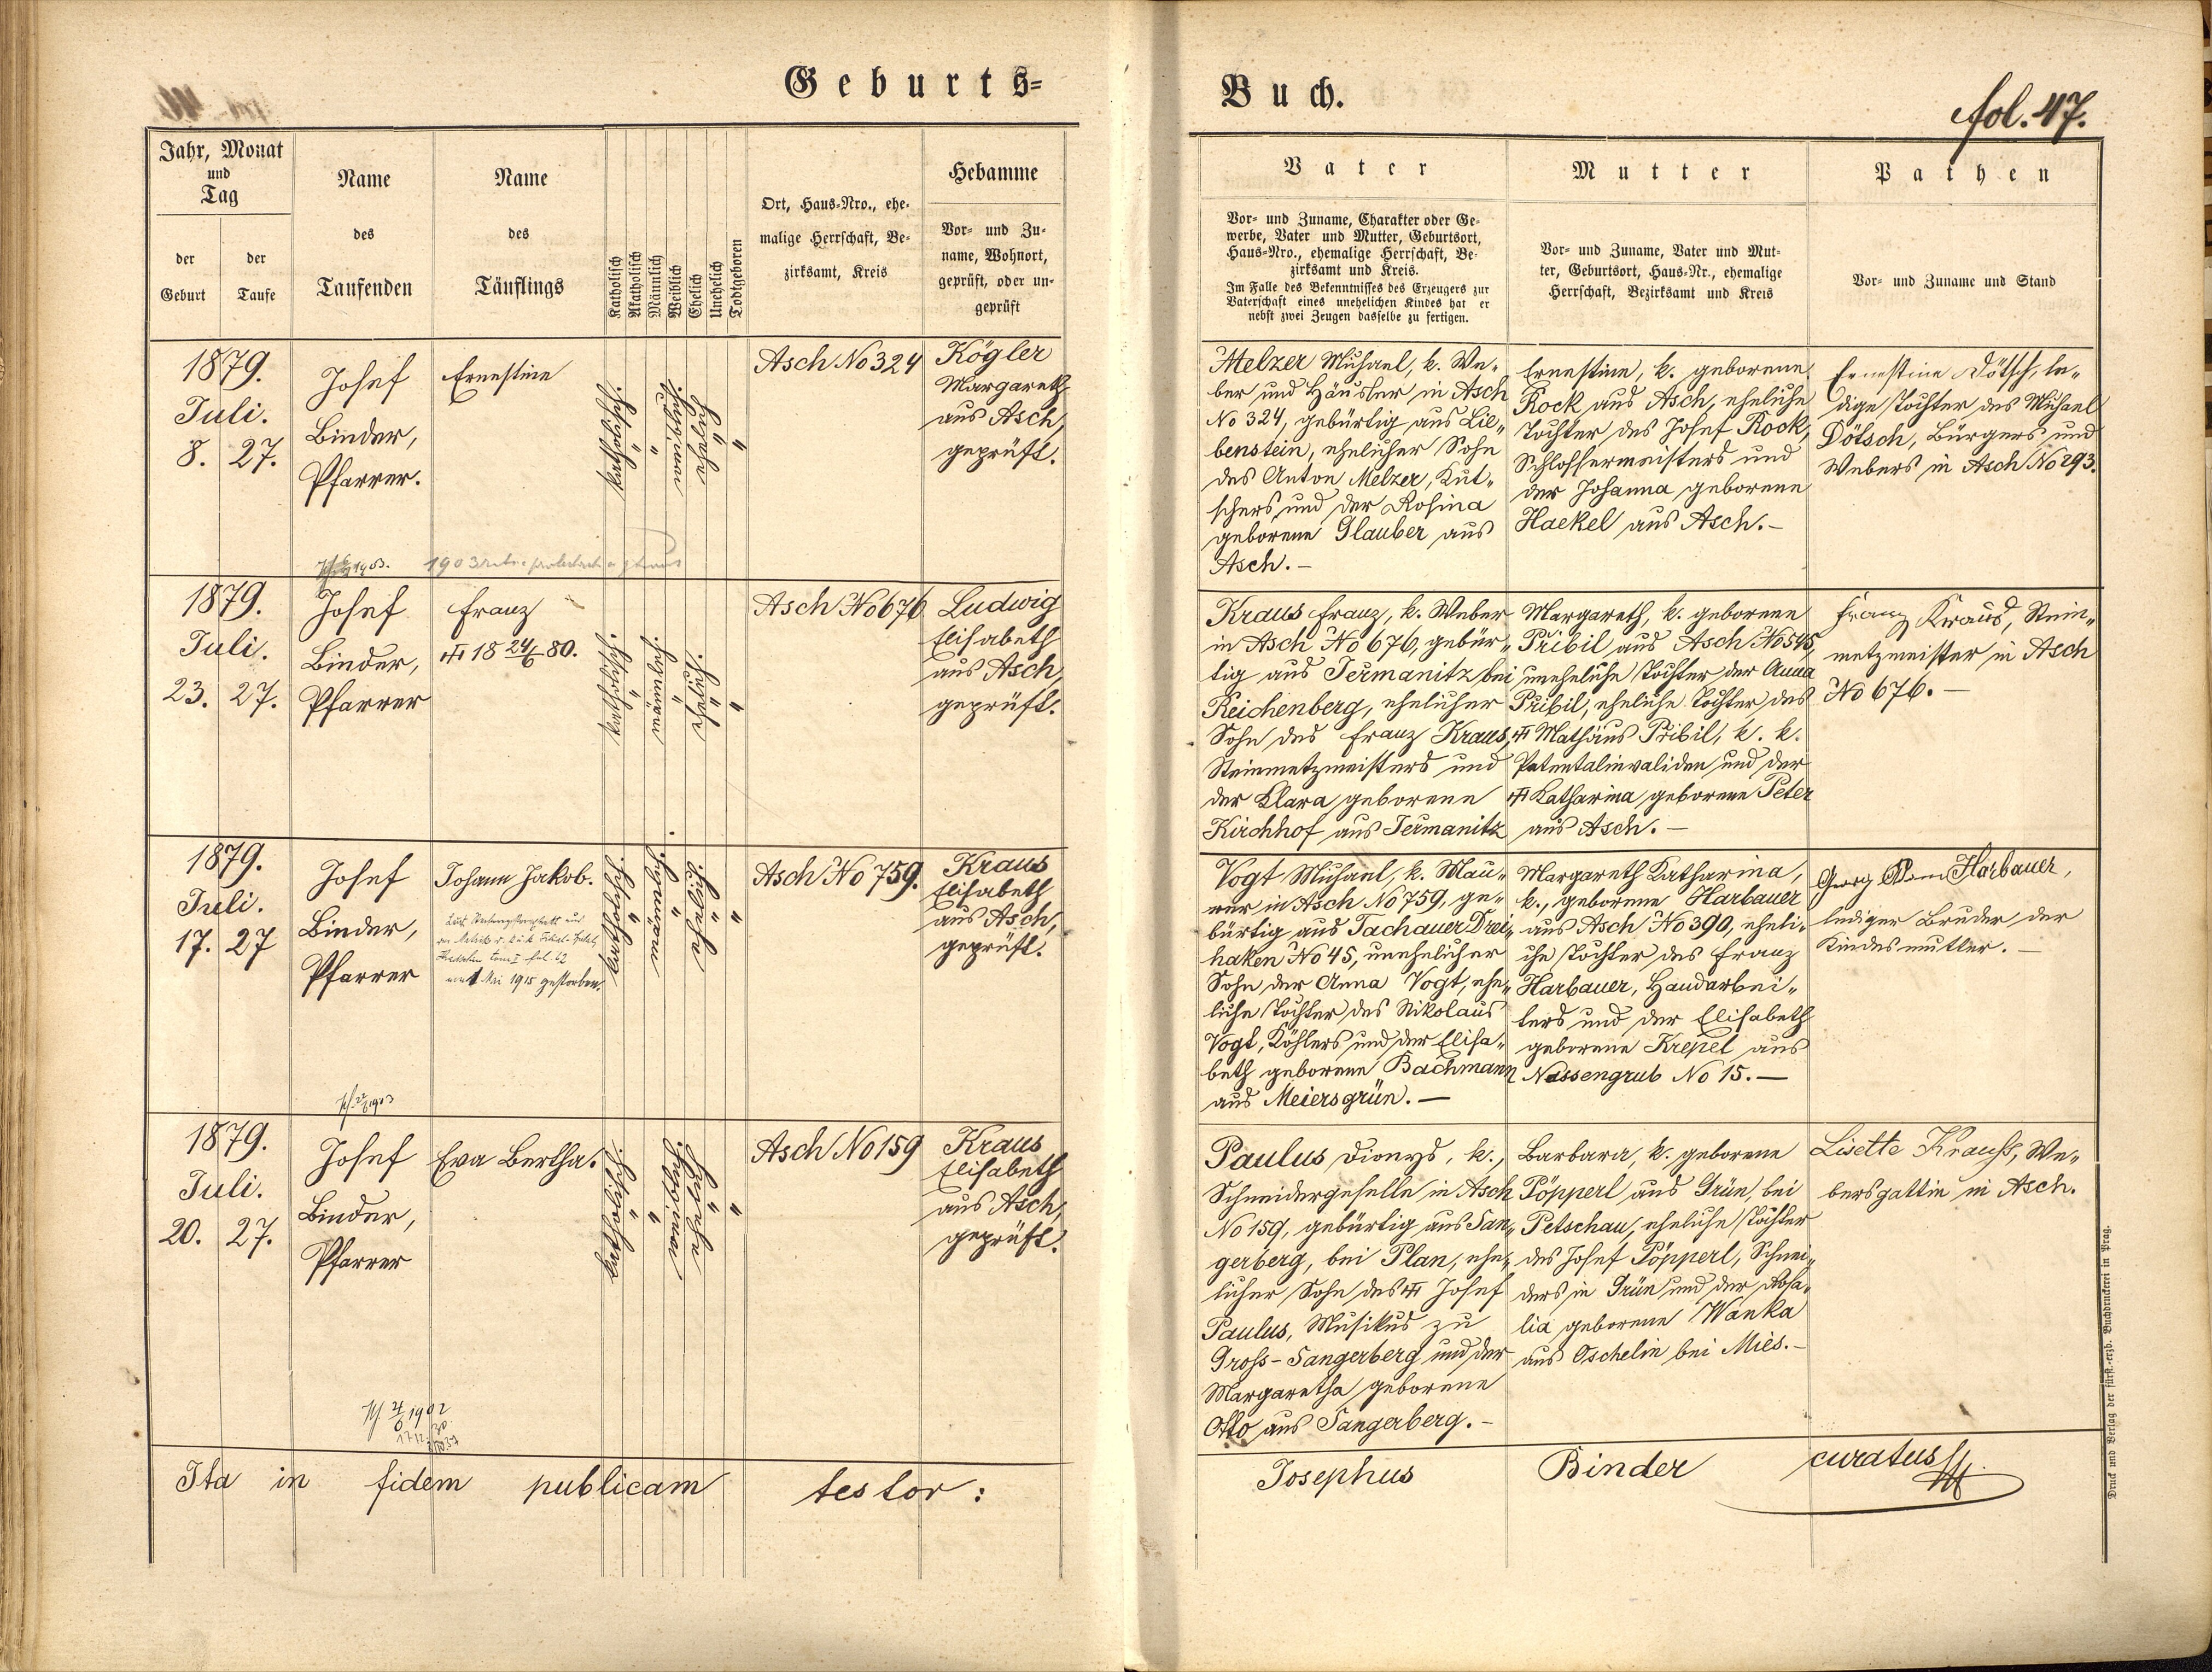 Geburts=
Buch.
fol. 47.
Jahr, Monat
und
Tag
der
Geburt
der
Taufe
Name
des
Taufenden
Name
des
Täuflings
Katholisch
Akatholisch
Männlich
Weiblich
Ehelich
Unehelich
Todtgeboren
Ort, Haus-Nro., ehe-
malige Herrschaft, Be-
zirksamt, Kreis
Hebamme
Vor- und Zu-
name, Wohnort,
geprüft, oder un-
geprüft
Vater
Vor- und Zuname, Charakter oder Ge-
werbe, Vater und Mutter, Geburtsort,
Haus-Nro., ehemalige Herrschaft, Be-
zirksamt und Kreis.
Im Falle des Bekenntnisses des Erzeugers zur
Vaterschaft eines unehelichen Kindes hat er
nebst zwei Zeugen dasselbe zu fertigen.
Mutter
Vor- und Zuname, Vater und Mut-
ter, Geburtsort, Haus-Nr., ehemalige
Herrschaft, Bezirksamt und Kreis
Pathen
Vor- und Zuname und Stand
1879.
Juli.
8. 27.
Josef
Binder,
Pfarrer.
Ernestine
katholisch.
"
weiblich.
ehelich.
"
Asch No 324
Kögler
Margareth
aus Asch,
geprüft.
Melzer Michael, k. We-
ber und Häusler in Asch
No 324, gebürtig aus Lie-
benstein, ehelicher Sohn
des Anton Melzer, Kut-
schers und der Rosina
geborene Glauber aus
Asch.-
Ernestine, k. geborene
Rock aus Asch, eheliche
Tochter des Josef Rock,
Schlossermeisters und
der Johanna geborene
Hackel aus Asch.-
Ernestine Dötsch, le-
dige Tochter des Michael
Dötsch, Bürgers und
Webers in Asch No 293.
1903
1879.
Juli.
23. 27.
Josef
Binder,
Pfarrer
Franz
18 24/6 80.
katholisch.
"
männlich.
"
ehelich.
"
Asch No 676
Ludwig
Elisabeth
aus Asch,
geprüft.
Kraus Franz, k. Weber
in Asch No 676, gebür-
tig aus Jermanitz bei
Reichenberg, ehelicher
Sohn des Franz Kraus,
Steinmetzmeisters und
der Klara geborene
Kirchhof aus Jermanitz
Margareth, k. geborene
Pribil aus Asch No 545,
uneheliche Tochter der Anna
Pribil, eheliche Tochter des
Mathäus Pribil, k. k.
Patentalinvaliden und der
Katharina geborene Peter
aus Asch.-
Franz Kraus, Stein-
metzmeister in Asch
No 676.-
1879.
Juli.
17. 27
Josef
Binder,
Pfarrer
Johann Jakob.
1 Mai 1915 gestorben.
katholisch.
"
männlich.
"
ehelich.
"
Asch No 759.
Kraus
Elisabeth
aus Asch,
geprüft.
Vogt Michael, k. Mau-
rer in Asch No 759, ge-
bürtig aus Tachauer Drei-
haken No 45, unehelicher
Sohn der Anna Vogt, ehe-
liche Tochter des Nikolaus
Vogt, Köhlers und der Elisa-
beth geborene Bachmann
aus Meiersgrün.-
Margareth Katharina,
k., geborene Harbauer
aus Asch No 390, eheli-
che Tochter des Franz
Harbauer, Handarbei-
ters und der Elisabeth
geborene Krepel aus
Nassengrub No 15.-
Georg Harbauer,
lediger Bruder der
Kindesmutter.-
1879.
Juli.
20. 27.
Josef
Binder,
Pfarrer
Eva Bertha.
katholisch.
"
weiblich.
ehelich.
"
Asch No 159
Kraus
Elisabeth
aus Asch,
geprüft.
Paulus Dionys, k.,
Schneidergeselle in Asch
No 159, gebürtig aus San-
gerberg, bei Plan, ehe-
licher Sohn des Josef
Paulus, Musikus zu
Gross-Sangerberg und der
Margaretha geborene
Otto aus Sangerberg.-
Barbara, k. geborene
Pöpperl aus Grün, bei
Petschau, eheliche Tochter
des Josef Pöpperl, Schnei-
ders in Grün und der Rosa-
lia geborene Wanka
aus Oschelin bei Mies.-
Lisette Krauß, We-
bersgattin in Asch.
1902
Ita in fidem publicam testor:
Josephus Binder curatus
Druck und Verlag der fürst.-erzb. Buchdruckerei in Prag.